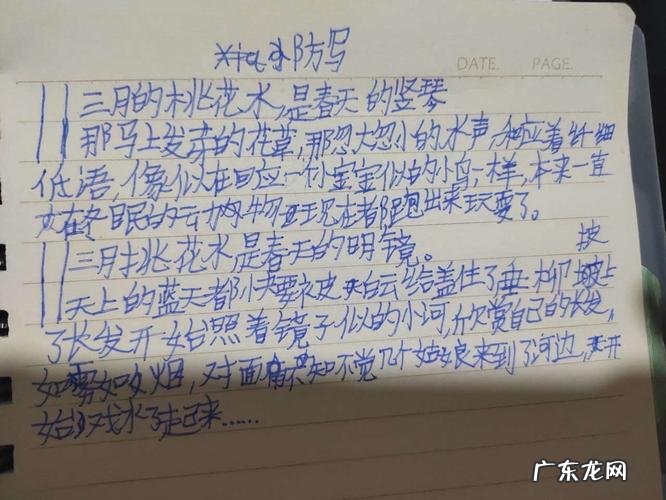 防写
DATE. PAGE.
三月的桃花水,是春天的竖琴
那马上发芽的花草,那忽大忽小的水声,和应着纤细
低语,像似在回应一小宝宝似的小鸟一样,本来一直
在冬眠的动物现在都跑出来玩耍了。
三月桃花水,是春天的明镜。
天上的蓝天都快要被白云给盖住了垂柳披上
了长发开始照着镜子似的小河,欣赏自己的长发,
如雾如烟,对面不知不觉几个姑娘来到了河边,开
始戏水了起来……
广东龙网